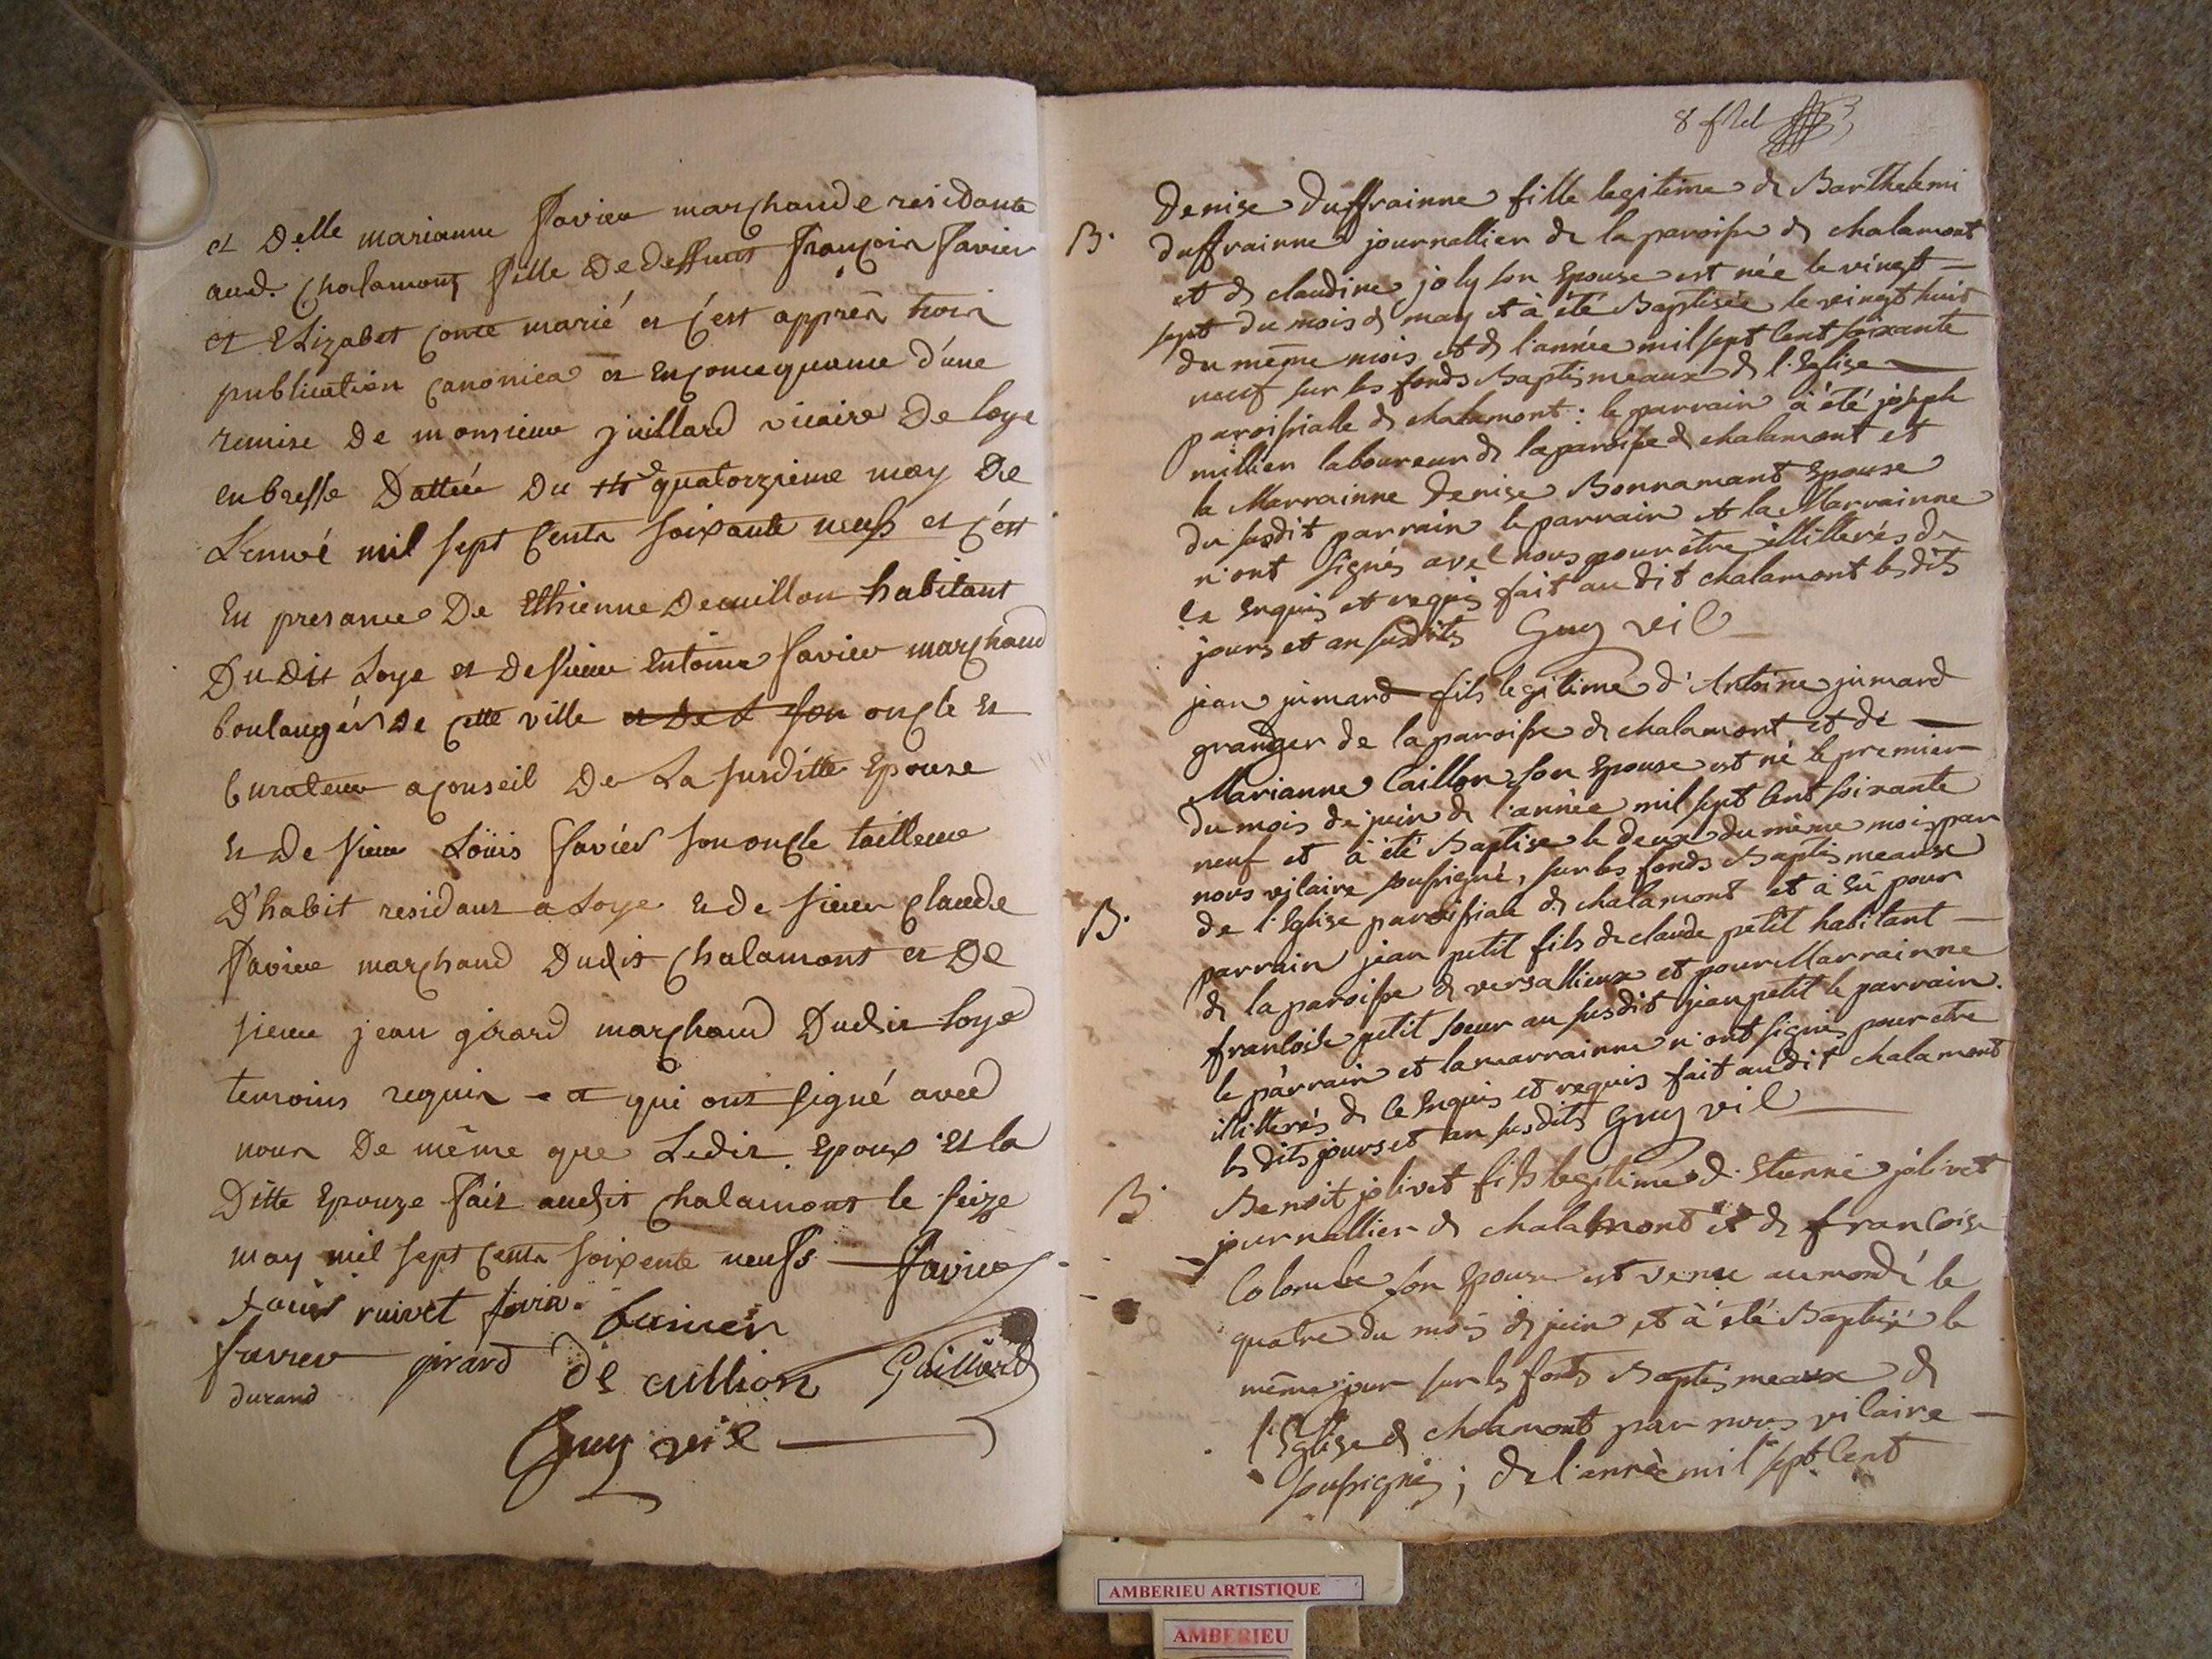 et Delle marianne favier marchande residante
aud. chalamont fille De deffunt françois favier
et Elizabet conte marié et c'est apprés trois
publication canonica et en consequance d'une
remise De monsieur juillard vicaire De loye
en bresse Dattée Du quatorzieme may De
L'année mil sept cents soixante neufs et c'est
En presance De Ethienne Decuillon habitant
Du dit Loye et De sieur Entoine favier marchand
boulangér De cette ville et De son oncle Et
curateur aconseil De La susditte Epouse
Et De sieur Löüis favier son oncle tailleur
D'habit residant a Loye Et de sieur claude
favier marchand Dudit chalamont et De
sieur jean girard marchand Dudit Loye
temoins requis et qui ont signé avec
nous De même que Ledit Epoux Et la
Ditte Epouze fait audit chalamont le seize
may mil sept cents soixente neufs favier
ruivet
girard De cullion Guillard
durand
Guy vic
8
Denise Duffrainne fille legitime de Barthelemi
B. duffrainne journallier de la paroisse de chalamont
et de claudine joly son Epouse est née le vingt
sept du mois de may et à été Baptisée le vingt huit
du même mois et de l'année mil sept cent soixante
neuf sur les fonds Baptismeaux de l'Eglise
paroissialle de chalamont : le parrain à été joseph
millien laboureur de la paroisse de chalamont et
la Marrainne Denise Bonnamant Epouse
du susdit parrain le parrain et la Marrainne
n'ont signés avec nous pour être illitterés de
ce Enquis et requis fait au dit chalamont les dits
jours et an susdits Guy vic
jean jumard fils legitime d'Antoine jumard
granger de la paroisse de chalamont et de
Marianne Caillon son Epouse est né le premier
du mois de juin de l'année mil sept cent soixante
neuf et à été Baptisé le deux du même mois par
nous vicaire soussigné, sur les fonds Baptismeaux
B. de l'Eglise paroissiale de chalamont et à Eü pour
parrain jean petit fils de claude petit habitant
de la paroisse de versallieux et pour Marrainne
francoise petit soeur au susdit jean petit le parrain.
le parrain et la marrainne n'ont signés pour etre
illitterés de ce Enquis et requis fait au dit chalamont
les dits jours et an susdits Guy vic
B. Benoit jolivet fils legitime d'Etienne jolivet
journallier de chalamont et de francoise
Colombe son Epouse est venu au monde le
quatre du mois de juin et à été Baptisé le
même jour sur les fonds Baptismeaux de
l'Eglise de chalamont par nous vicaire
soussigné ; de l'année mil sept cent
AMBERIEU ARTISTIQUE
AMBERIEU